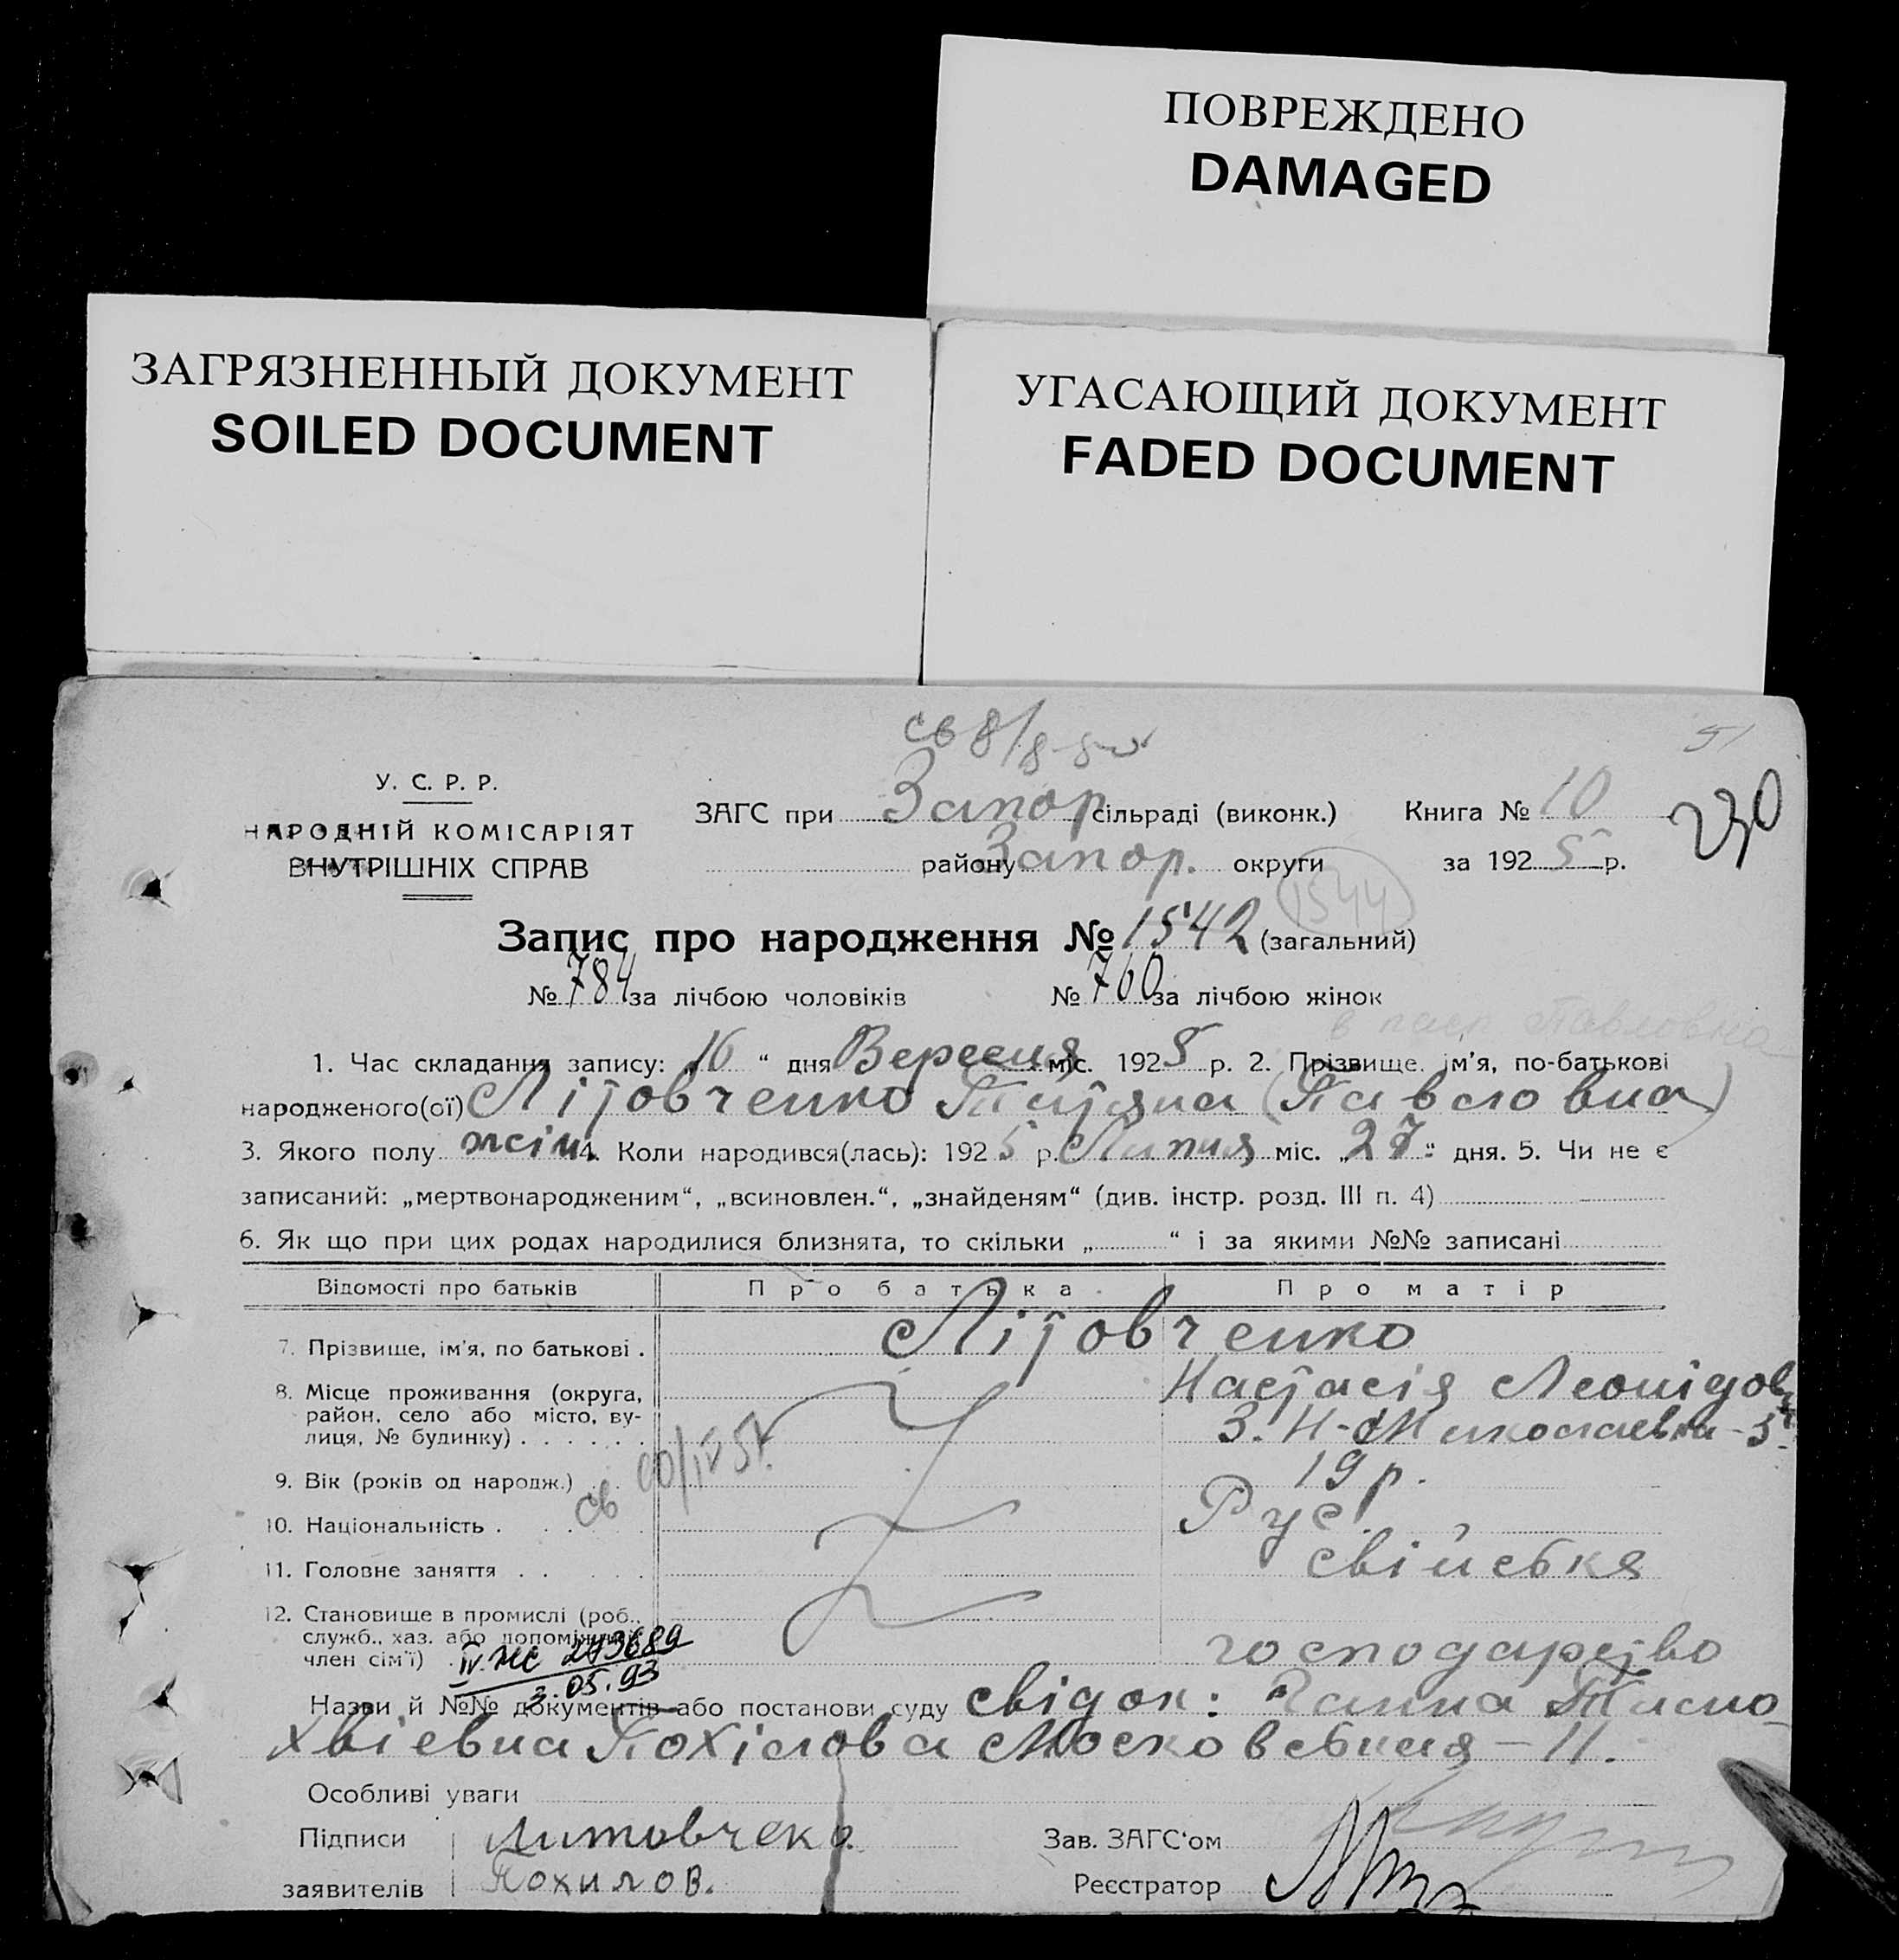 ПОВРЕЖДЕНО
DAMAGED
ЗАГРЯЗНЕННЫЙ ДОКУМЕНТ
SOILED DOCUMENT
УГАСАЮЩИЙ ДОКУМЕНТ
FADED DOCUMENT
св 8/8-
51
230
У. С. Р. Р.
НАРОДНІЙ КОМІСАРІЯТ
ВНУТРІШНІХ СПРАВ
ЗАГС при Запор сільраді (виконк.) Книга № 10
району Запор. округи за 1925 р.
1544
Запис про народження № 1542 (загальний)
№ 784 за лічбою чоловіків № 760 за лічбою жінок
в пасп Павловна
1. Час складання запису: „16“ дня Вересня міс. 1925 р. 2. Прізвище, ім'я, по-батькові
народженого(ої) Літовченко Татяна (Павловна)
3. Якого полу жін 4. Коли народився(лась): 1925 р. Липня міс. „27“ дня. 5. Чи не є
записаний: „мертвонародженим“, „всиновлен.“, „знайденям“ (див. інстр. розд. III п. 4)
6. Як що при цих родах народилися близнята, то скільки „ “ і за якими №№ записані
Відомості про батьків Про батька Про матір
7. Прізвище, ім'я, по батькові . Літовченко
Настасія Леонідов
8. Місце проживання (округа,
район, село або місто, ву-
лиця, № будинку) . . . . . . З. Н-Миколаевка-5
9. Вік (років од народж.) 19 р.
св
10. Національність . Рус.
11. Головне заняття . . свійськя
12. Становище в промислі (роб.,
служб., хаз. або допоміжний
член сім'ї) . господарство
IV-ЖС 273689
3.05.93
Назви й №№ документів або постанови суду свідок: Ганна Тимо
хвіевна Похілова Московськая - 11.
Особливі уваги
Підписи Литовчеко Зав. ЗАГС'ом
заявителів Похилов. Реєстратор